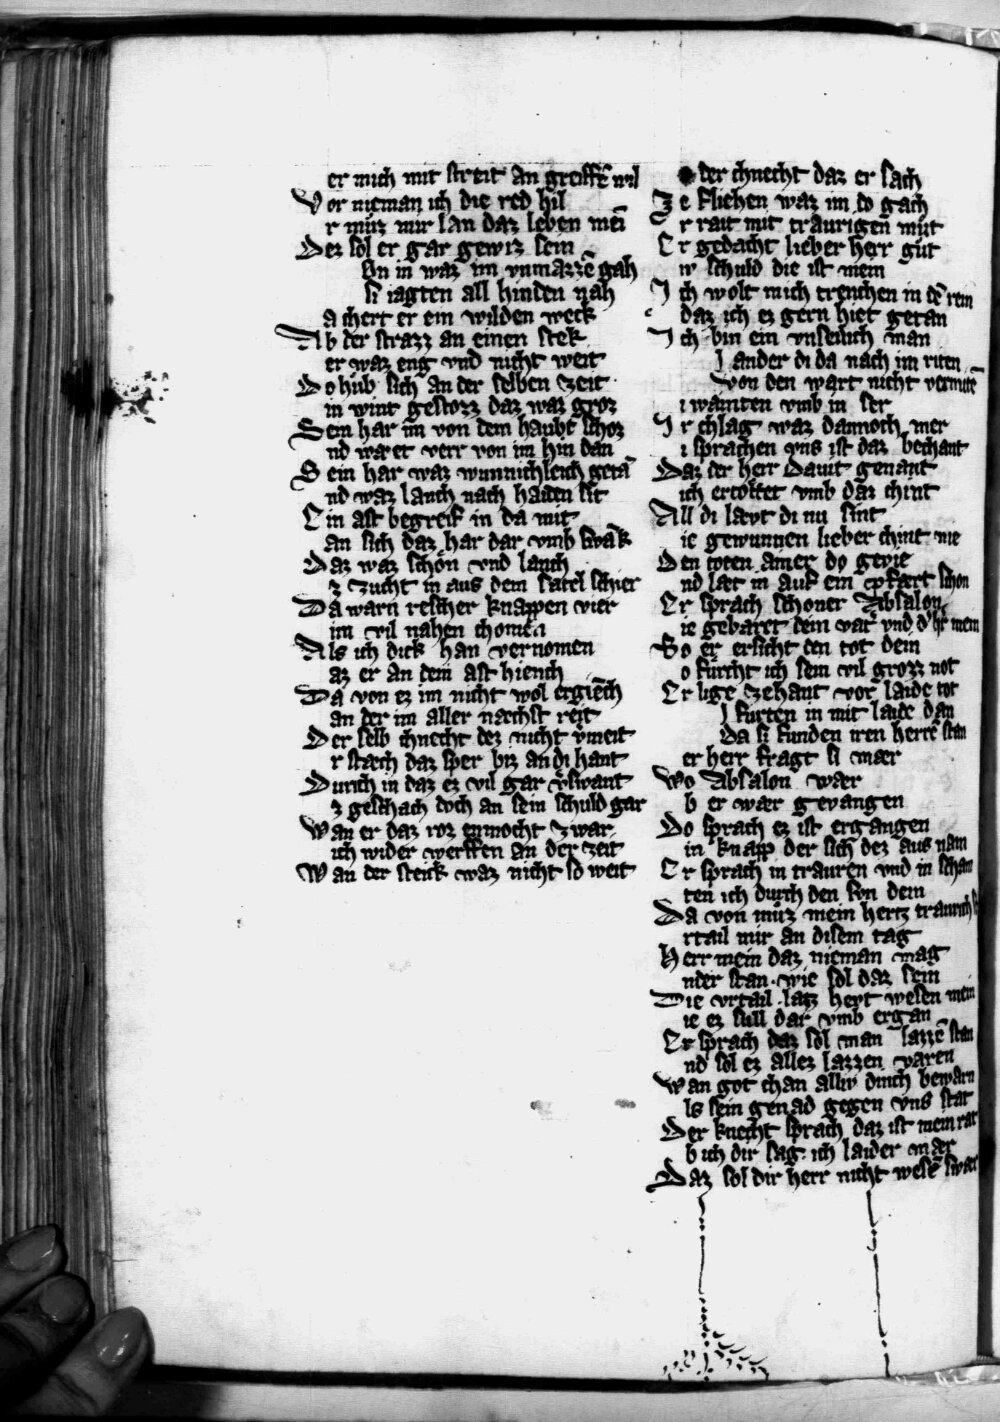 er mich mit streit an greiffē wil
Vor nieman ich die red hil
r muͤz mir lan daz leben mei
Dez sol er gar gewiz sein
Ẏn in waz im vnmazzē gah
si iagten all hinden nah
a chert er ein wilden weck
Ab der strazz an einen stek
er waz eng vnd nicht weit
Do hub sich an der selben zeit
in wint gestozz daz waz groz
Sein har im von dem haubt schoz
nd wæet verr von im hin dan
Sein har waz wunnichleich geta
nd waz lanch nach haiden sit
Ein ast begreif in da mit
an sich daz har dar vmb swāk
Daz waz schön vnd lanch
z zucht in aus dem satel schier
Da warn rescher knappen vier
im vil nahen chomen
Als ich dick han vernomen
az er an dem ast hiench
Da von ez im nicht wol ergiēch
an der im aller næchst reit
Der selb chnecht dez nicht v̄meit
r stæch daz sper biz an di hant
Durich in daz ez vil gar v̄swant
z geschach doch an sein schuld gar
Wan er daz roz enmocht zwar
ich wider werffen an der zeit
Wan der steick waz nicht so weit
o der chnecht daz er sach
Ze fliehen waz im do gach
r rait mit traurigen mut
Er gedacht lieber herr gut
iv schuld die ist mein
Ich wolt mich trenchen in dē rein
daz ich ez gern hiet getan
Ich bin ein vnselich man
I ander di da nach im riten
von den wart nicht vermite
i wainten vmb in ser
Ir chlag waz dannoch mer
i sprachen vns ist daz bechant
Daz der herr Dauit genant
ich ertottet vmb daz chint
All di læyt di nu sint
ie gewunnen lieber chint nie
Den toten ainer do gevie
nd læt in auf ein pfært schon
Er sprach schoner Absalon
ie gebaret dein vat͛ vnd d͛ h͛r mein
So er ersicht den tot dein
o furcht ich sein vil grozz not
Er lige zehant vor laide tot
I furten in mit laide dan
Da si funden iren herrē stan
er herr fragt si mær
Wo Absalon wær
b er wær gevangen
Do sprach ez ist ergangen
in knapp der sich dez aus nam
Er sprach in trauren vnd in scham
ten ich durch den son dein
Da von muͤz mein hertz traurich
rtail mir an disem tag
Herr mein daz nieman mag
nder stan wie sol daz sein
Die vrtail latz heyt wesen mein
ie ez sull dar vmb ergan
Er sprach daz sol man lazzē stan
nd sol ez allez lazzen varen
Wan got chan alliv dinch bewarn
ls sein genad gegen vns stat
Der knecht sprach daz ist mein rat
b ich dir sag ich laider mær
Daz sol dir herr nicht wesē swær